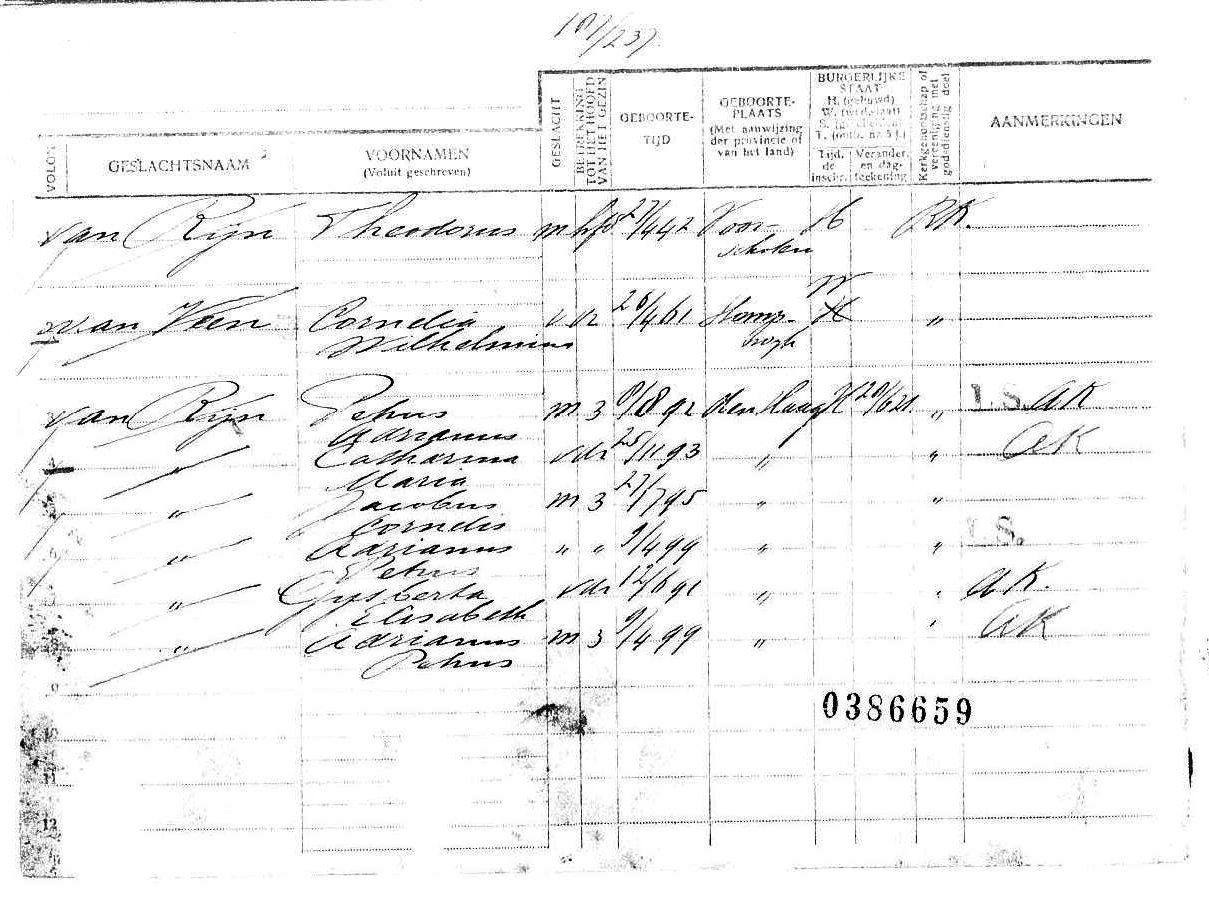 107/237.
VOLGN
GESLACHTSNAAM
VOORNAMEN
(Voluit geschreven)
GESLACHT
BETREKKING
TOT HET HOOFD
VAN HET GEZIN
GEBOORTE-
TIJD
GEBOORTE-
PLAATS
(Met aanwijzing
der provincie of
van het land)
BURGERLIJKE
STAAT
H. (gehuwd)
Tijd.
de
inschr.
Verander.
en dag-
teekening
Kerkgenootschap of
vereeniging met
godsdienstig doel
AANMERKINGEN
van Rijn Theodorus m hfd 27/4 42 Voor- H R.K.
schoten
W
van Veen Cornelia v 26/4 61 H "
Wilhelmina
van Rijn Petrus m 3 92 den Haag H " I.S. AK
Adrianus
" Catharina v dr 25/11 93 " " AK
Maria
" Jacobus m 3 27/7 95 " "
Cornelis
" Adrianus " " 9/4 99 " " I.S.
Petrus
" Gysberta v dr 12/6 91 " " AK.
Elisabeth
" Adrianus m 3 9/4 99 " " AK
Petrus
9
0386659
10
11
12